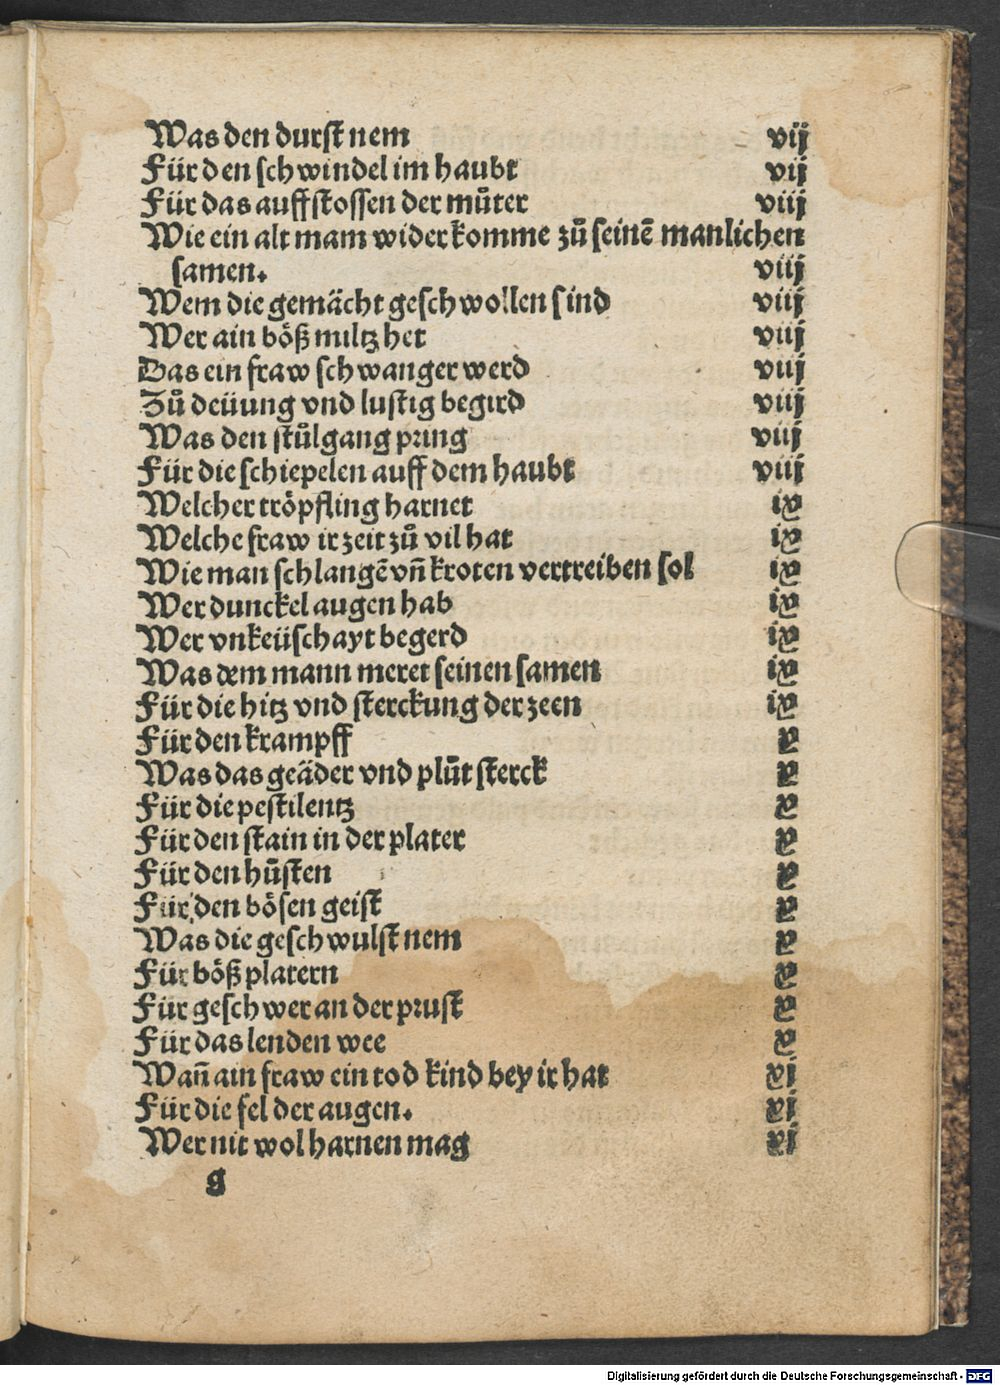 Was den durst nem vij
Für den schwindel im haubt vij
Für das auffstossen der muͦter viij
Wie ein alt mam wider komme zuͦ seinē manlichen
samen. viij
Wem die gemächt geschwollen sind viij
Wer ain böß miltz het viij
Das ein fraw schwanger werd viij
Zuͦ deüung vnd lustig begird viij
Was den stuͦlgang pring viij
Für die schiepelen auff dem haubt viij
Welcher tröpfling harnet ix
Welche fraw ir zeit zuͦ vil hat ix
Wie man schlangē vñ kroten vertreiben sol ix
Wer dunckel augen hab ix
Wer vnkeüschayt begerd ix
Was dem mann meret seinen samen ix
Für die hitz vnd sterckung der zeen ix
Für den krampff x
Was das geäder vnd pluͦt sterck x
Für die pestilentz x
Für den stain in der plater x
Für den huͦsten x
Für den bösen geist x
Was die geschwulst nem x
Für böß platern x
Für geschwer an der prust x
Für das lenden wee x
Wañ ain fraw ein tod kind bey ir hat xi
Für die fel der augen. xi
Wer nit wol harnen mag xi
g
Digitalisierung gefördert durch die Deutsche Forschungsgemeinschaft - DFG